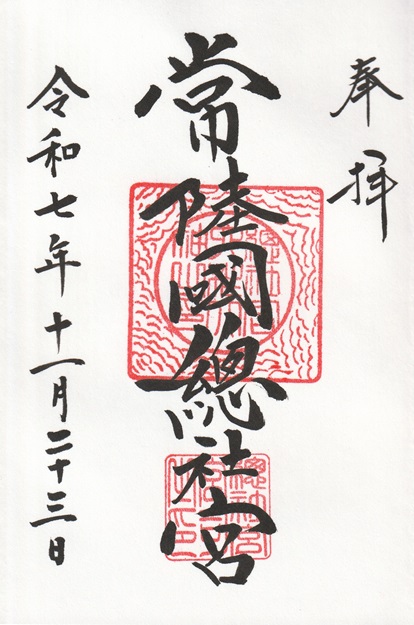 奉拝
常陸國總社宮
令和七年十一月二十三日